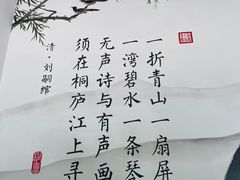 清·刘嗣绾
一折青山一扇屏
一湾碧水一条琴
无声诗与有声画
须在桐庐江上寻